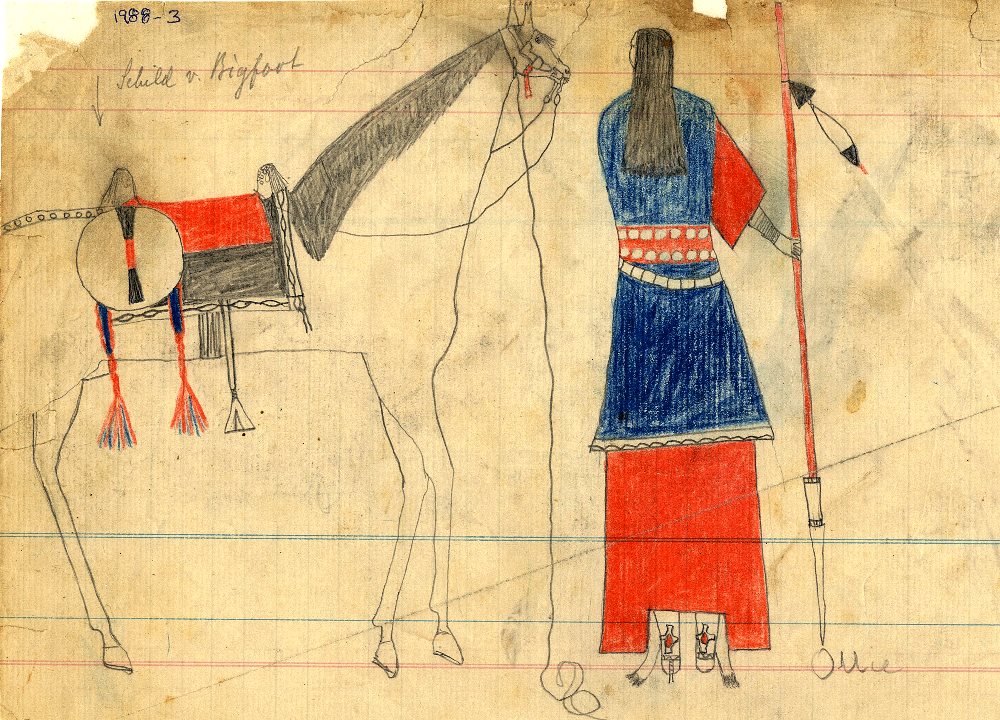 1988-3
Schild v. Bigfoot
Ollie